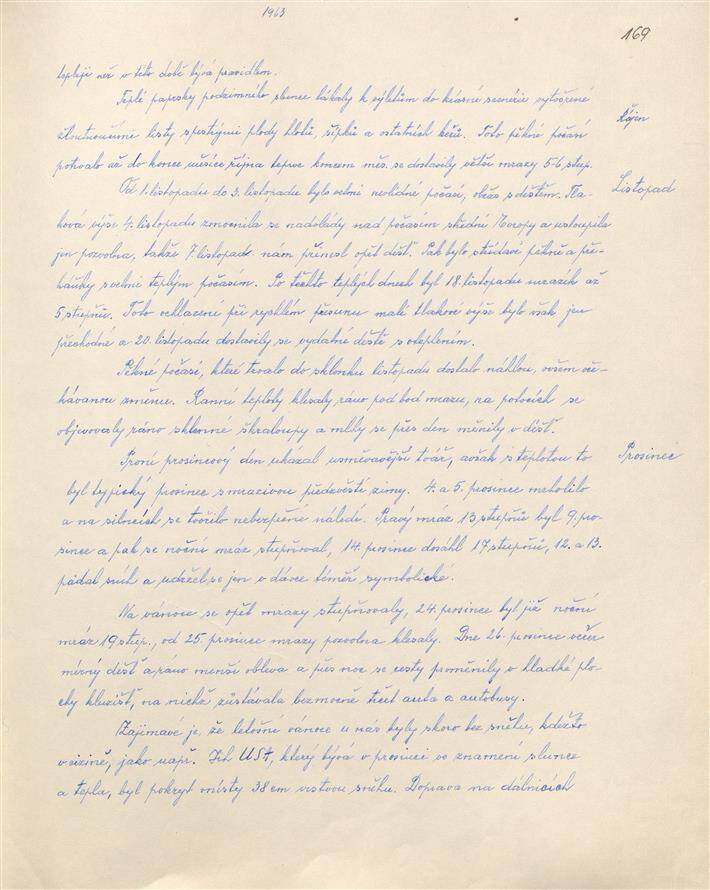 1963
169
tepleji než v této době bývá pravidlem.
Teplé paprsky podzimního slunce lákaly k výletům do krásné scenérie vytvořené
žloutnoucími listy spestřými plody hlohů, šípků a ostatních keřů. Toto pěkné počasí
Říjen
potrvalo až do konce měsíce října teprve koncem měs. se dostavily větší mrazy 5-6 stup.
Od 1. listopadu do 3. listopadu bylo velmi nevlídné počasí, občas s deštěm. Tla-
Listopad
ková výše 4. listopadu zmocnila se nadvlády nad počasím střední Evropy a ustoupila
jen pozvolna, takže 7. listopad. nám přinesl opět déšť. Pak bylo střídavě pěkně a pře-
háňky s velmi teplým počasím. Po těchto teplých dnech byl 18. listopadu mrazík až
5 stupňů. Toto ochlazení při rychlém přesunu malé tlakové výše bylo však jen
přechodné a 20. listopadu dostavily se vydatné deště s oteplením.
Pěkné počasí, které trvalo do sklonku listopadu dostalo náhlou, ovšem oče-
kávanou změnu. Ranní teploty klesaly ráno pod bod mrazu, na potocích se
objevovaly ráno sklenné škraloupy a mlhy se přes den měnily v déšť.
První prosincový den ukázal usměvavější tvář, avšak s teplotou to
Prosinec
byl typický prosinec s mrazivou předzvěstí zimy. 4. a 5. prosince mrholilo
a na silnicích se tvořilo nebezpečné náledí. Pravý mráz 13 stupňů byl 9. pro-
since a pak se noční mráz stupňoval, 14. prosince dosáhl 17 stupňů, 12. a 13.
padal sníh a udržel se jen v dávce téměř symbolické.
Na vánoce se opět mrazy stupňovaly, 24. prosince byl již noční
mráz 19 stup., od 25. prosince mrazy pozvolna klesaly. Dne 26. prosince večer
mírný déšť a ráno menší obleva a přes noc se cesty proměnily v hladké plo-
chy kluzišť, na nichž zůstávala bezmocně stát auta a autobusy.
Zajímavé je, že letošní vánoce u nás byly skoro bez sněhu, kdežto
v cizině, jako např. Jih USA, který bývá v prosinci ve znamení slunce
a tepla, byl pokryt místy 38 cm vrstvou sněhu. Doprava na dálnicích